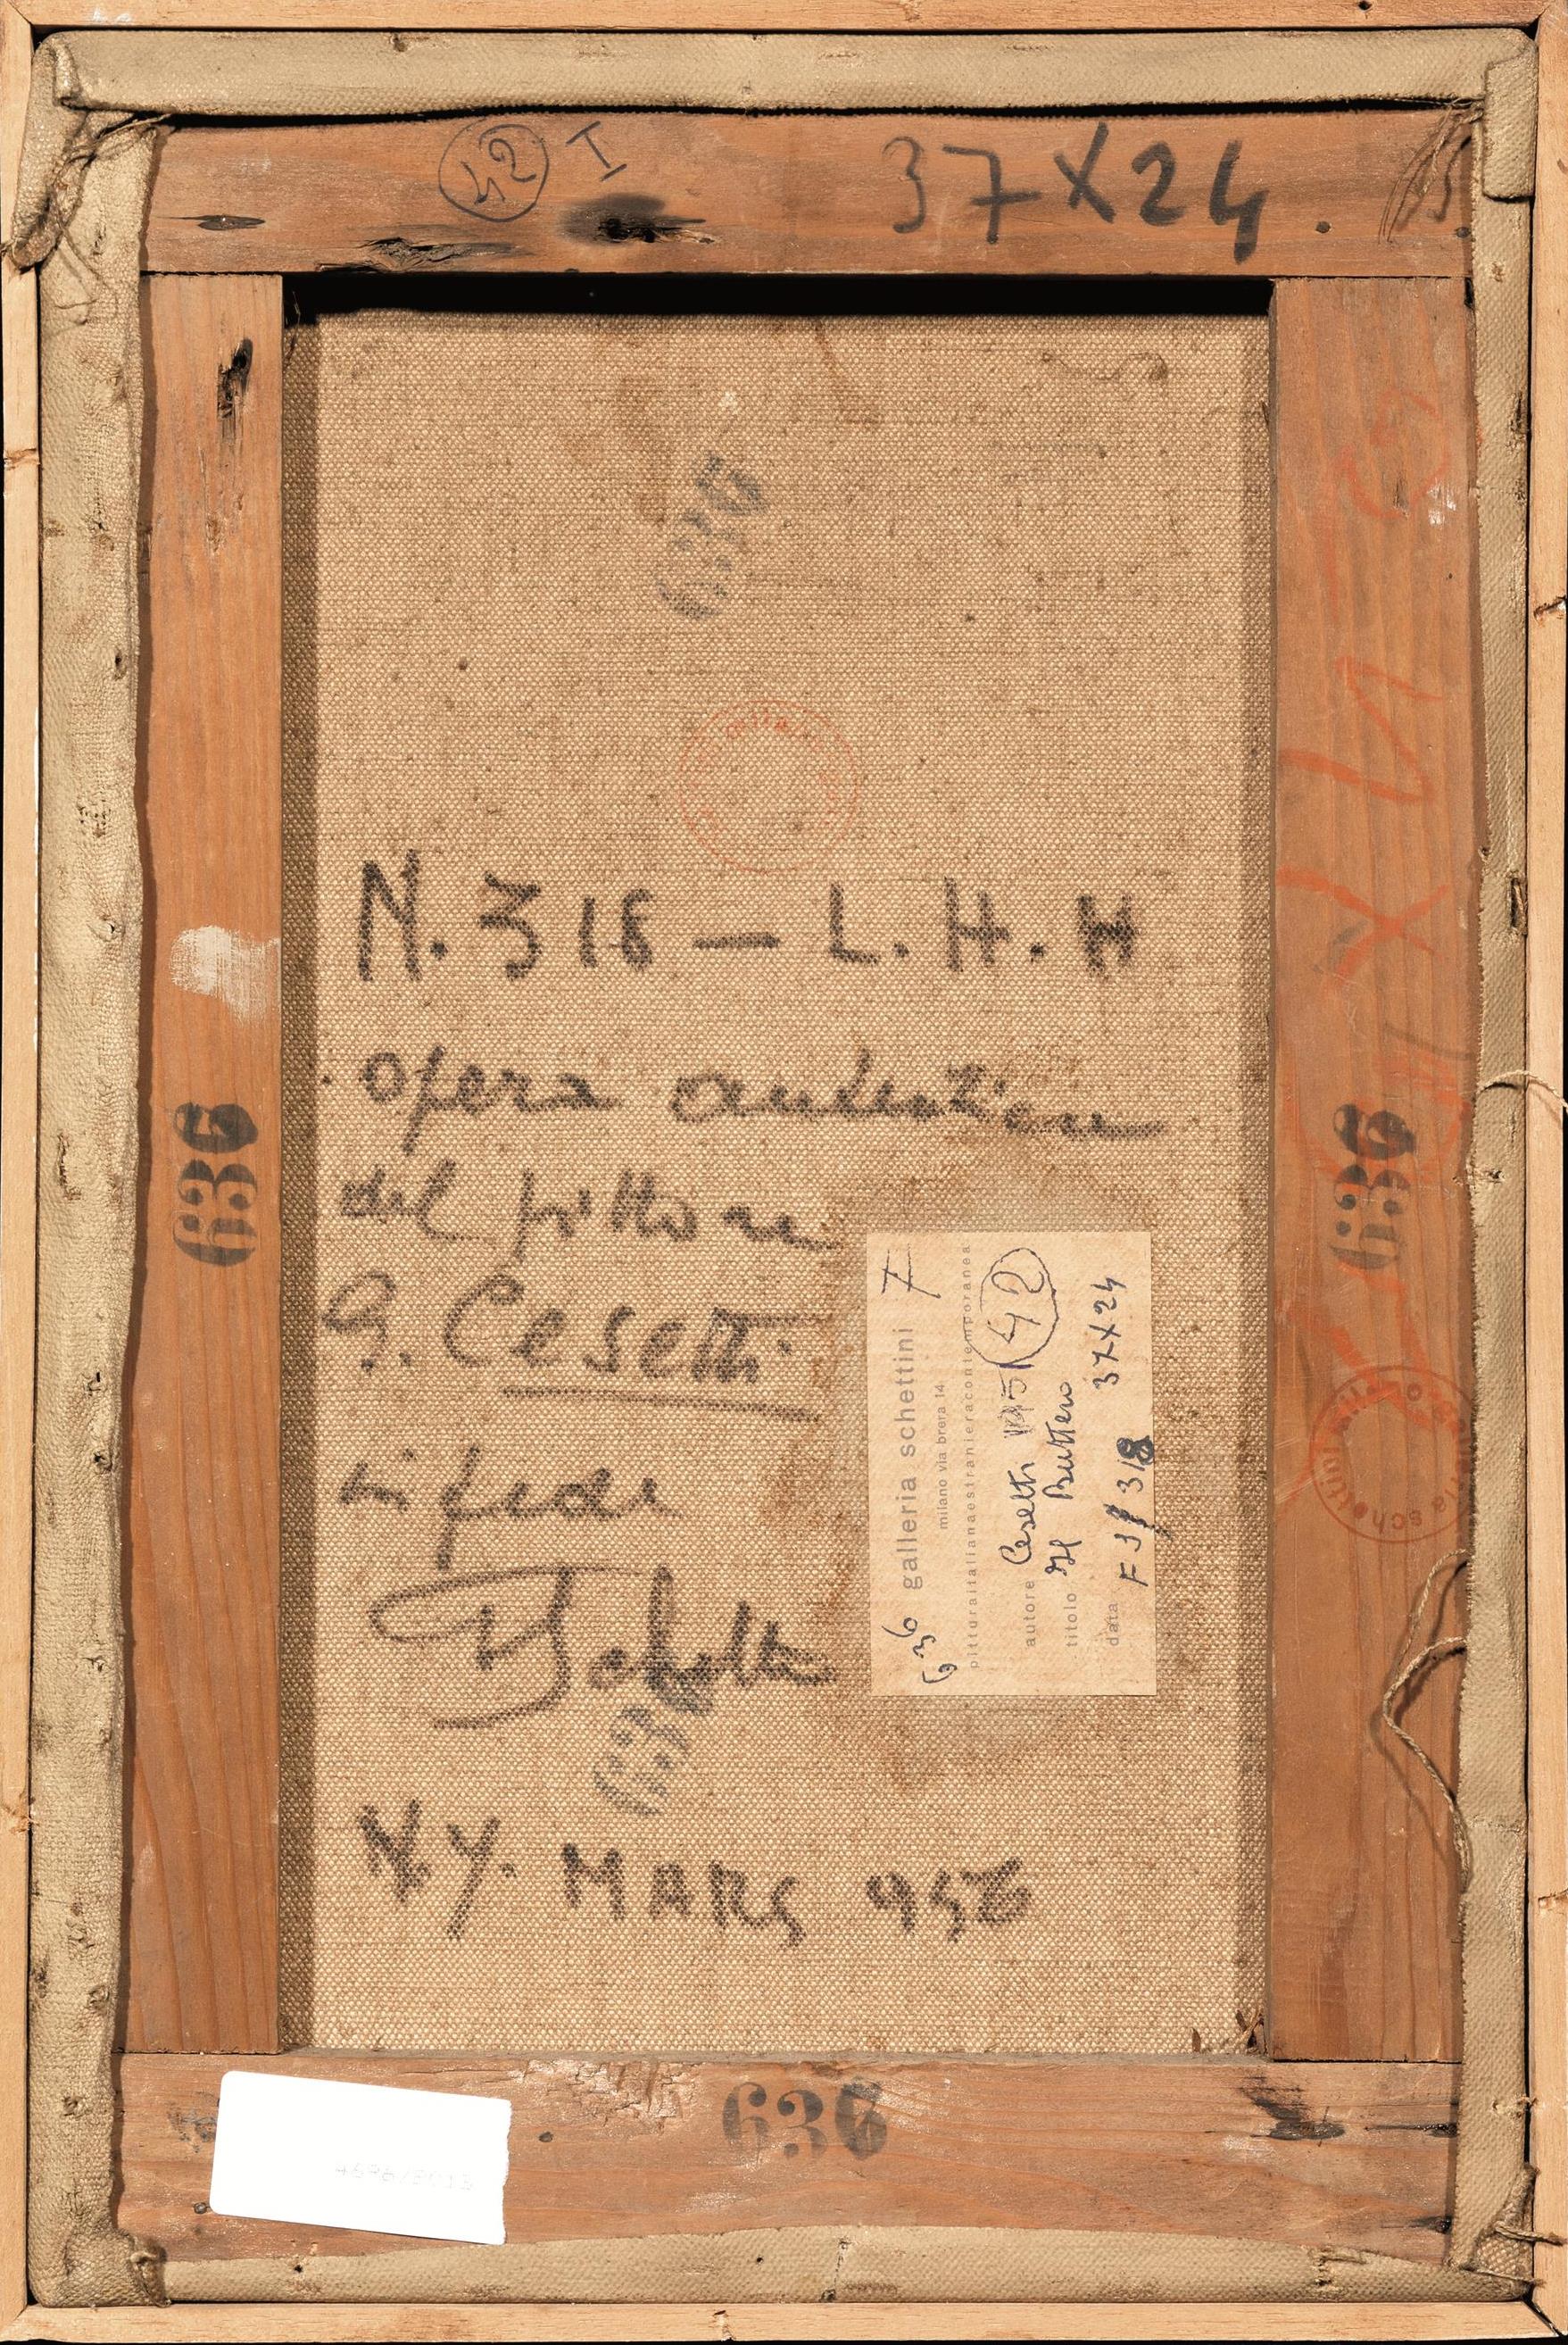 42 I 37X24.
636
N. 318 — L. H. H
opera autentica
del pittore
G. Cesetti
in fede
636
MARS 956
636
636
636
636 galleria schettini 7
milano via brera 14
pitturaitalianaestranieracontemporanea
autore Cesetti 42
titolo Il Buttero
data 37X24
318
galleria schettini